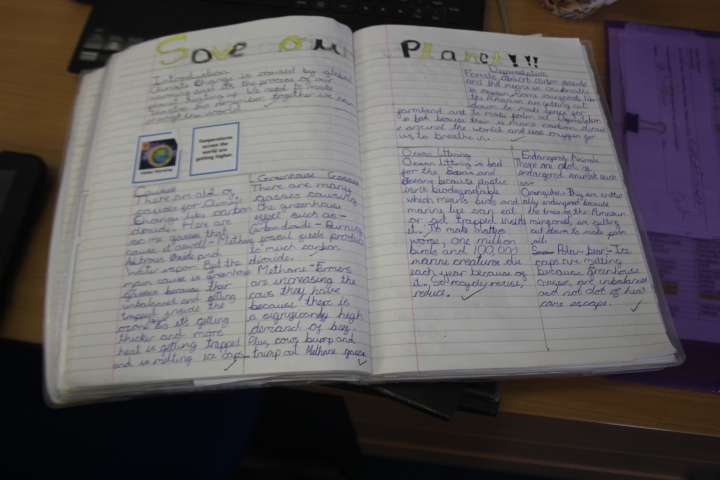 Save Our
Introduction
Climate Change is caused by global
warming and its the process of our
planet heating up. We need to make
sure to remember, together we can
change the world.
Temperatures
across the
world are
getting higher.
Causes
There are alot of
causes for Climate
Change like carbon
dioxide. Here are
some gasses that
cause it aswell - Methane,
Nitrous Oxide and
Water vapour. But the
main cause is greenhouse
gasses because their
unbalanced and getting
trapped inside the
ozone so its getting
thicker and more
heat is getting trapped
and is melting ice caps.
Greenhouse Gasses
There are many
gasses causing
the greenhouse
effect such as -
Carbon dioxide - Burning
fossil fuels produce
to much carbon
dioxide.
Methane - Farmers
are increasing the
cows they have
because there is
a significantly high
demand of beef.
Plus cows burp and
trump out Methane gasses
Planet!!!
Deforestation
Forests absorb carbon dioxide
and that means we can breathe
in oxygen. Some
like The Amazon are getting cut
down to make space for
farmland and to make palm oil. Deforestation
is bad because there is more carbon dioxide
around the world and less oxygen for
us to breathe in.
Ocean Littering
Ocean littering is bad
for the Ocean and
because plastic
isn't biodegradable
which means birds and
marine life can eat
or get trapped inside
it. To make matters
worse, one million
birds and 100,000
marine creatures die
each year because of
it. So recycle, reuse,
reduce.
Endangered Animals
There are alot of
endangered animals such
as:
Orangutan - They are critic-
ally endangered because
the trees of the Amazon
rainforest are getting
cut down to make palm
oil.
Polar bear - Ice
caps are melting
because greenhouse
gasses are unbalanced
and not alot of heat
can escape.